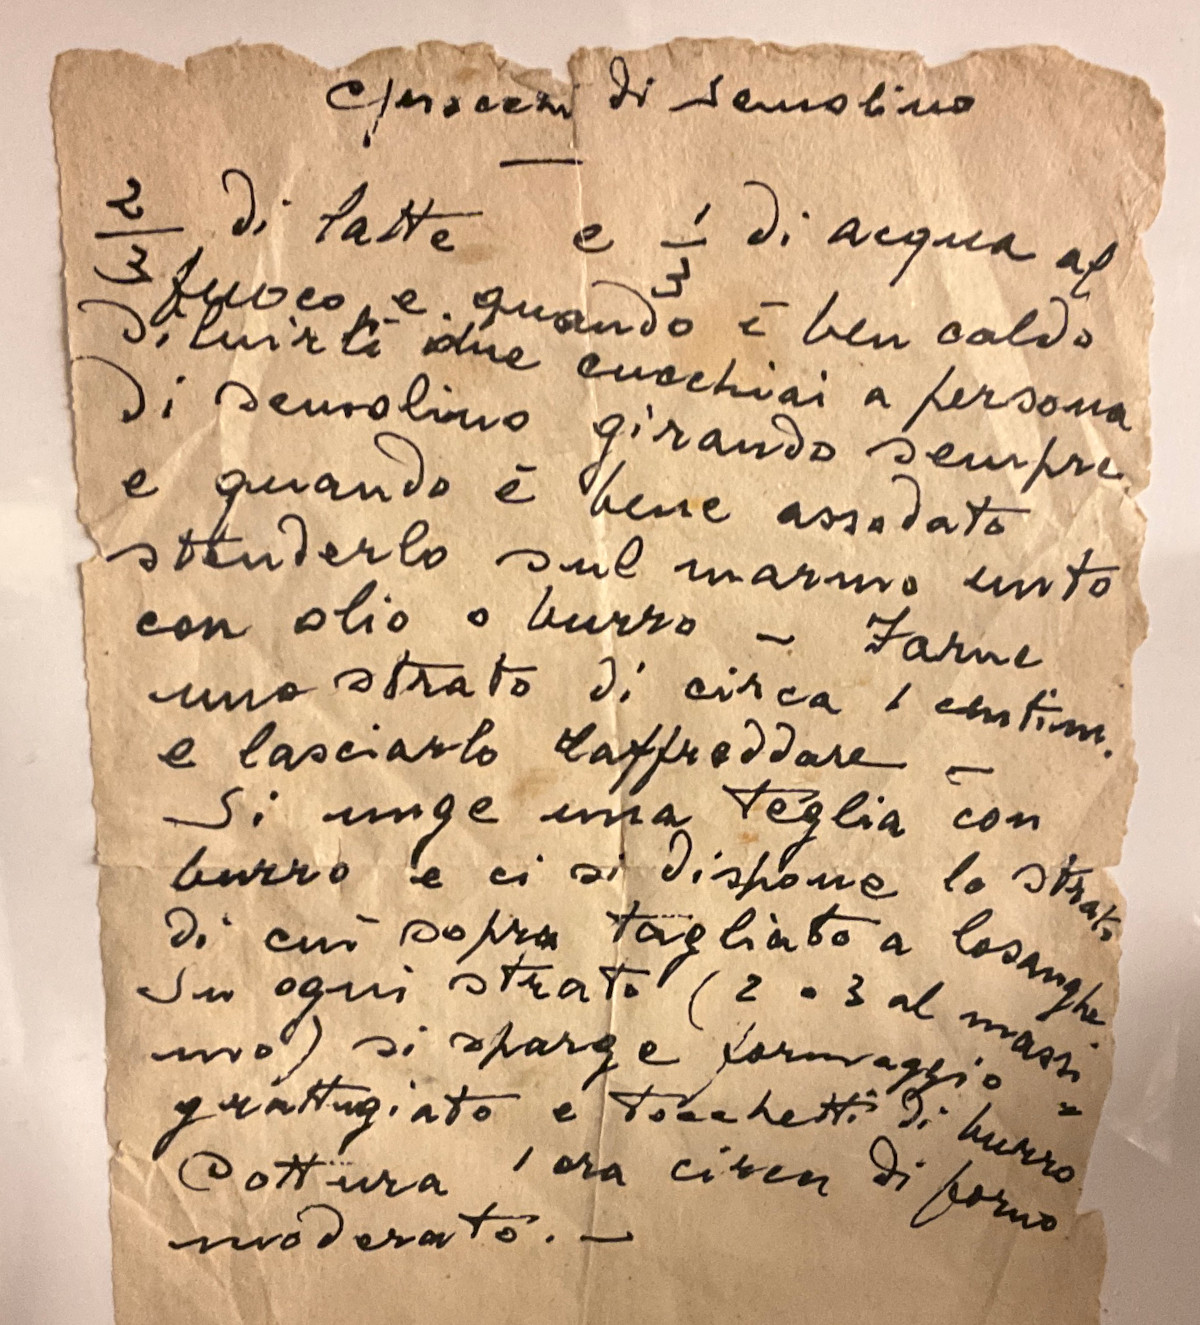 Gnocchi di semolino
2/3 di latte e 1/3 di acqua al
fuoco e quando è ben caldo
diluirti due cucchiai a persona
di semolino girando sempre
e quando è bene assodato
stenderlo sul marmo unto
con olio o burro – Farne
uno strato di circa 1 centim.
e lasciarlo raffreddare –
Si unge una teglia con
burro e ci si dispone lo strato
di cui sopra tagliato a losanghe
Su ogni strato (2 o 3 al massi=
mo) si sparge formaggio
grattugiato e tocchetti di burro
Cottura 1 ora circa di forno
moderato. –